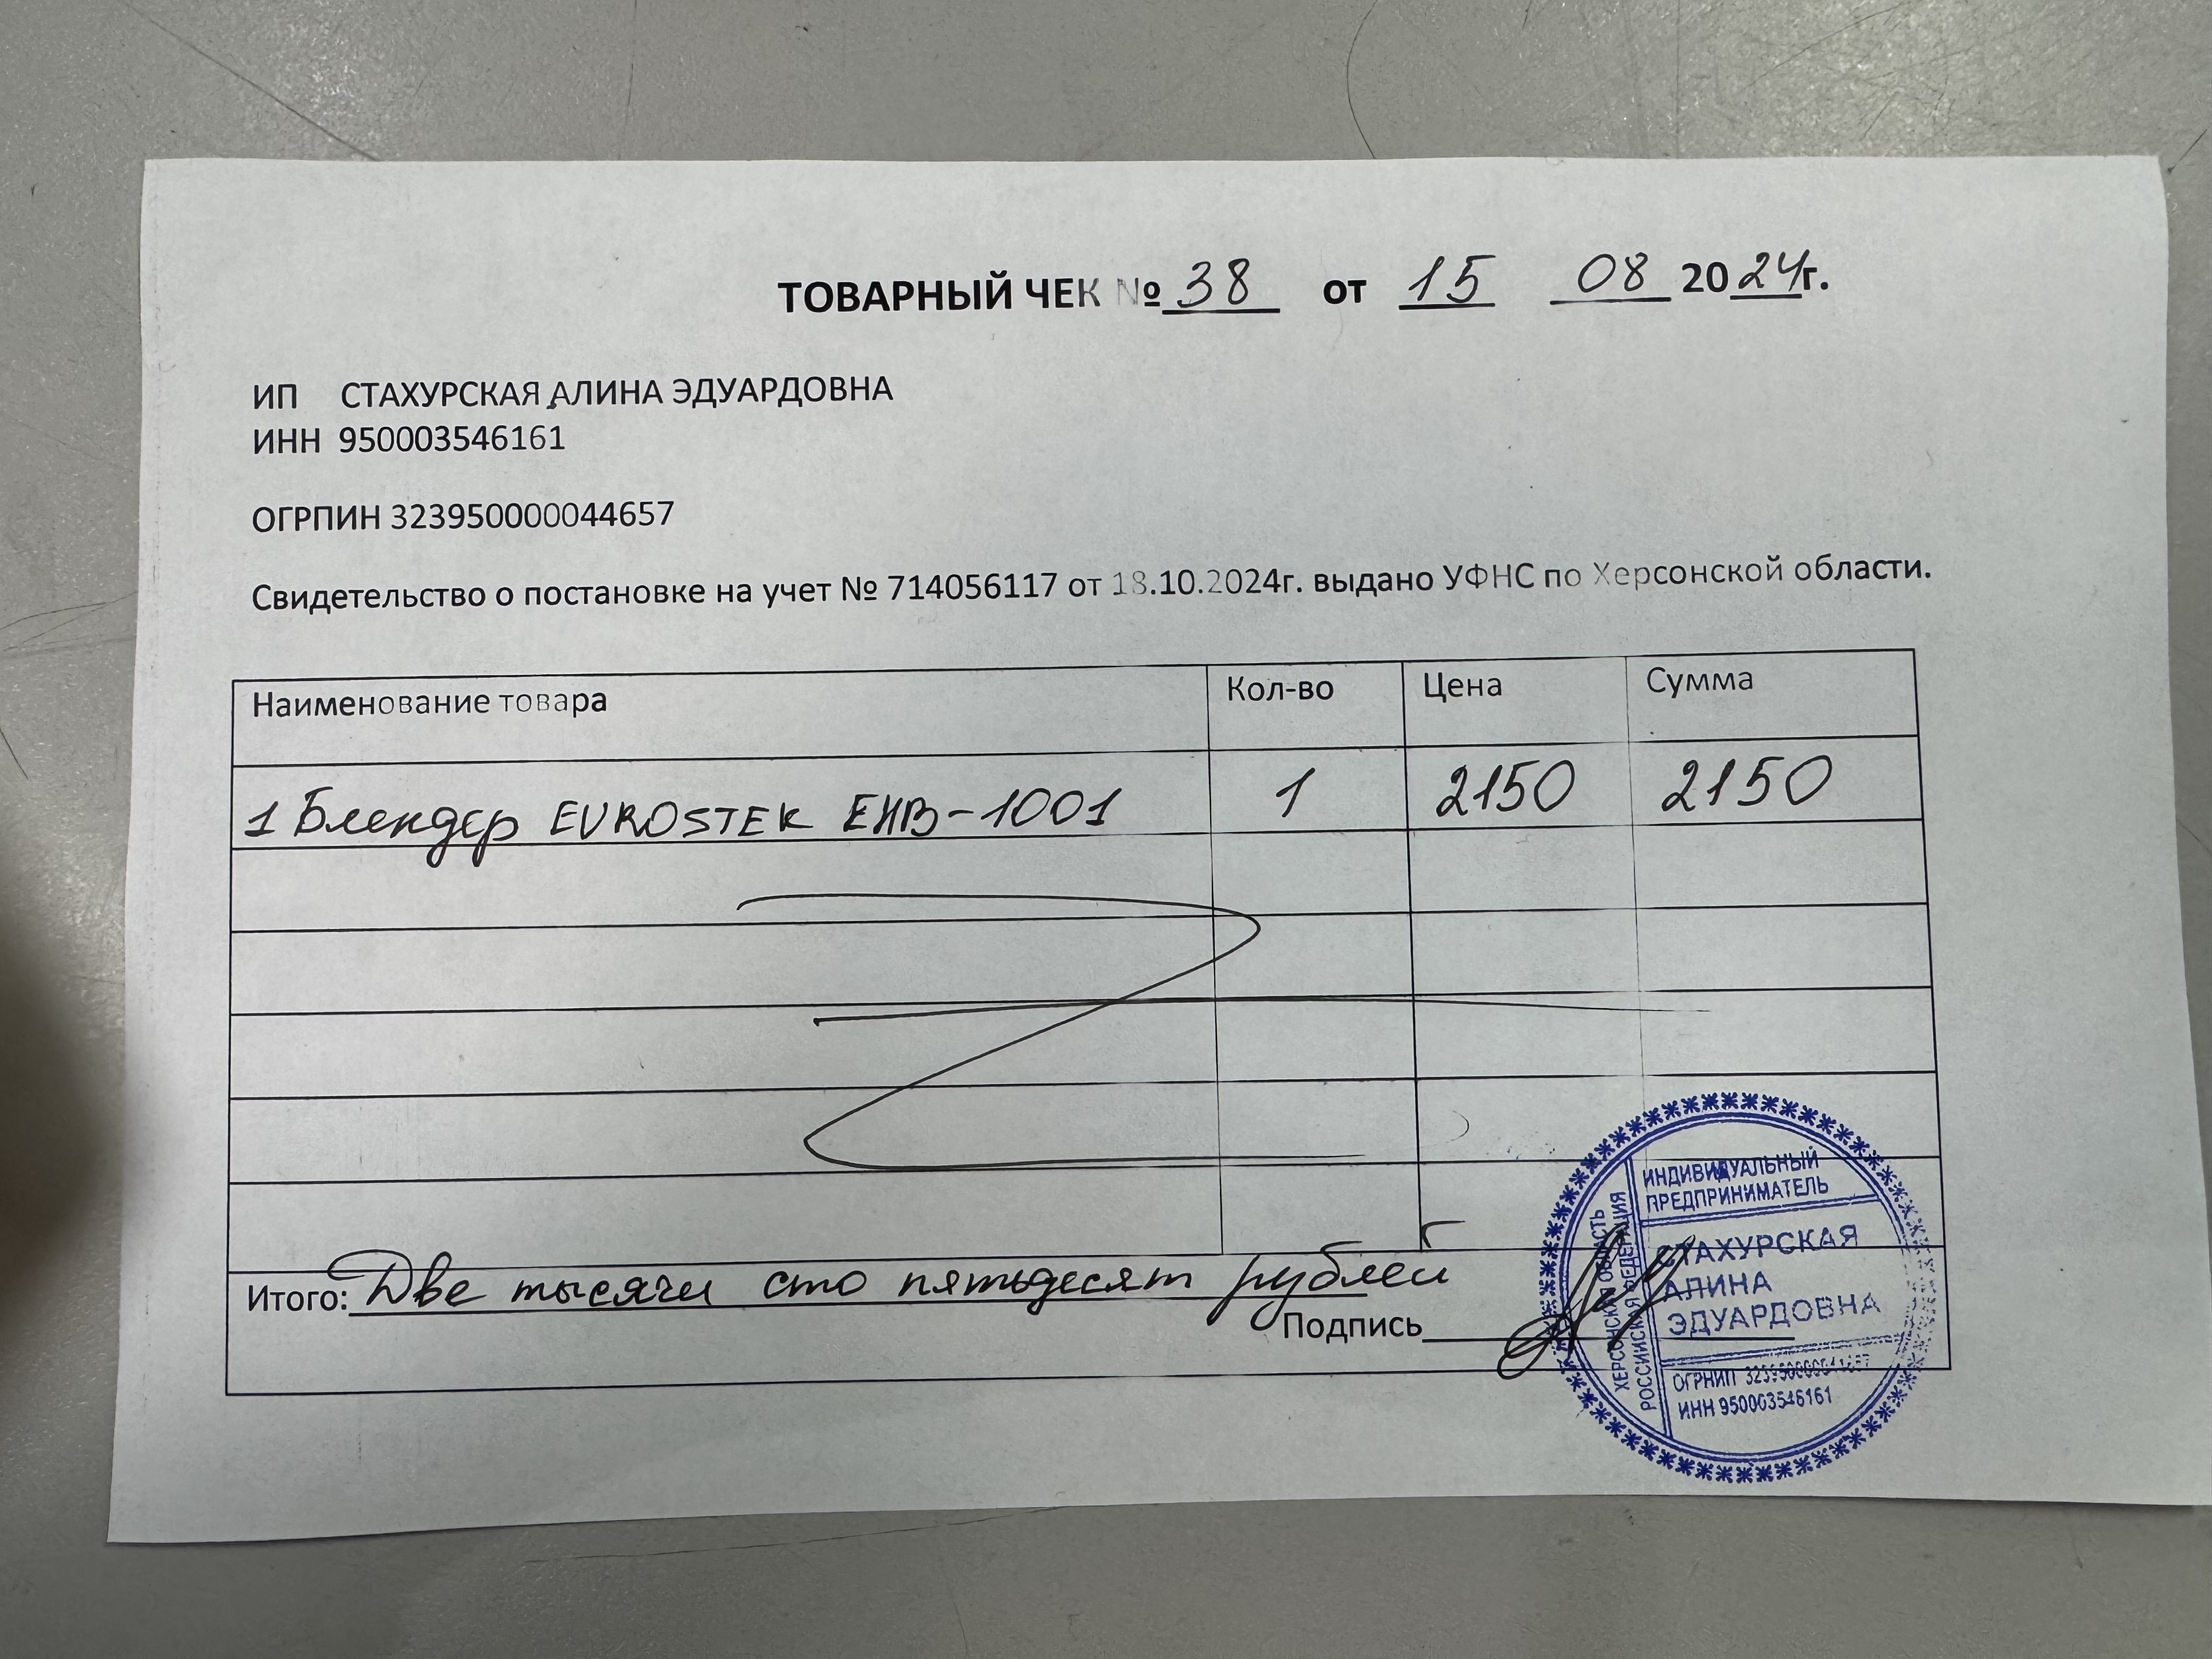 ТОВАРНЫЙ ЧЕК № 38 от 15 08 2024г.
ИП СТАХУРСКАЯ АЛИНА ЭДУАРДОВНА
ИНН 950003546161
ОГРПИН 323950000044657
Свидетельство о постановке на учет № 714056117 от 18.10.2024г. выдано УФНС по Херсонской области.
Наименование товара Кол-во Цена Сумма
1 Блендер EVROSTEK EHB-1001 1 2150 2150
Итого: Две тысячи сто пятьдесят рублей
Подпись
ХЕРСОНСКАЯ ОБЛАСТЬ
РОССИЙСКАЯ ФЕДЕРАЦИЯ
ИНДИВИДУАЛЬНЫЙ
ПРЕДПРИНИМАТЕЛЬ
СТАХУРСКАЯ
АЛИНА
ЭДУАРДОВНА
ОГРНИП
ИНН 950003546161